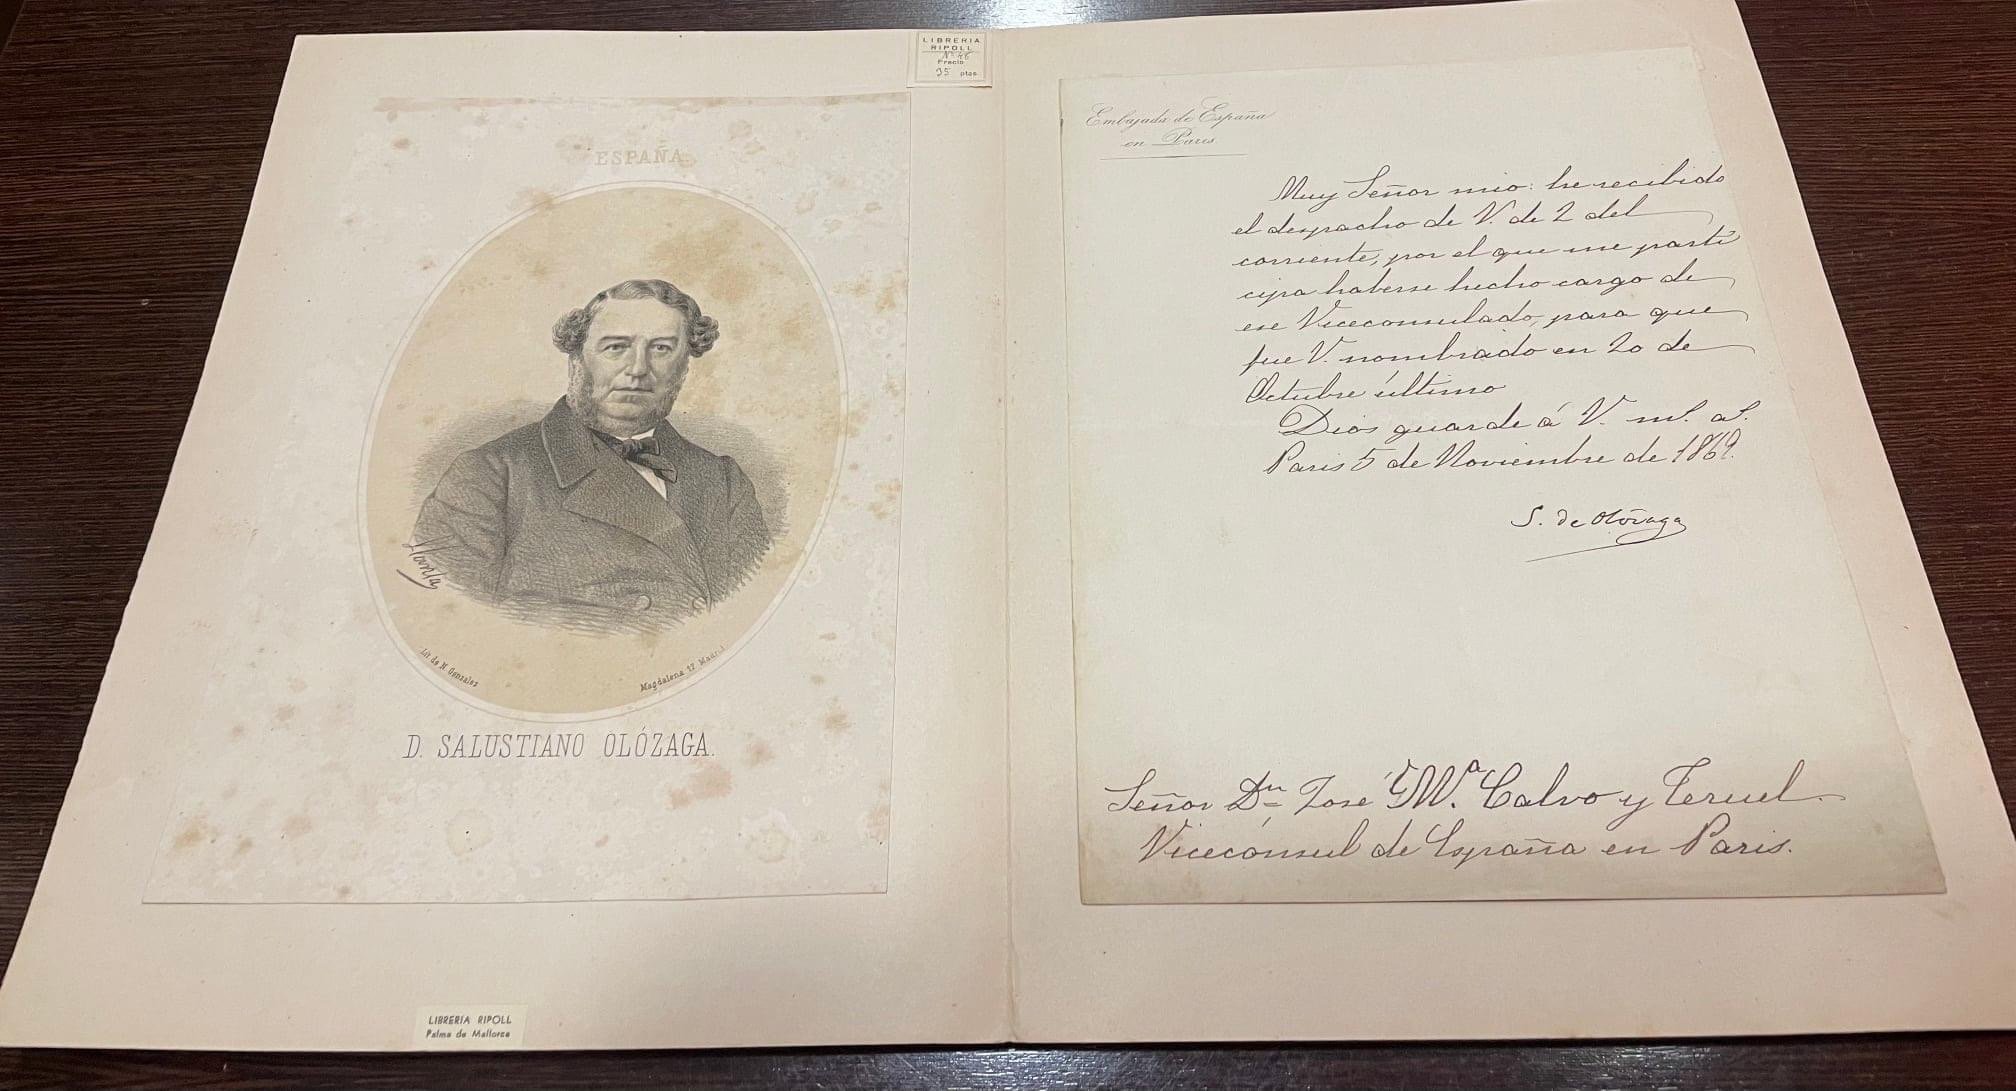 LIBRERIA
RIPOLL
Nº 46
Precio
35 ptas
ESPAÑA.
Llanta
Lit de N. Gonzalez
Magdalena 17 Madrid
D. SALUSTIANO OLÓZAGA.
LIBRERIA RIPOLL
Palma de Mallorca
Embajada de España
en Paris
Muy Señor mio: he recibido
el despacho de V. de 2 del
corriente, por el que me parti
cipa haberse hecho cargo de
ese Viceconsulado, para que
fue V. nombrado en 20 de
Octubre último
Dios guarde á V. ms. as.
Paris 5 de Noviembre de 1869.
S. de Olózaga
Señor Dn José Mª Calvo y Teruel.
Viceconsul de España en Paris.